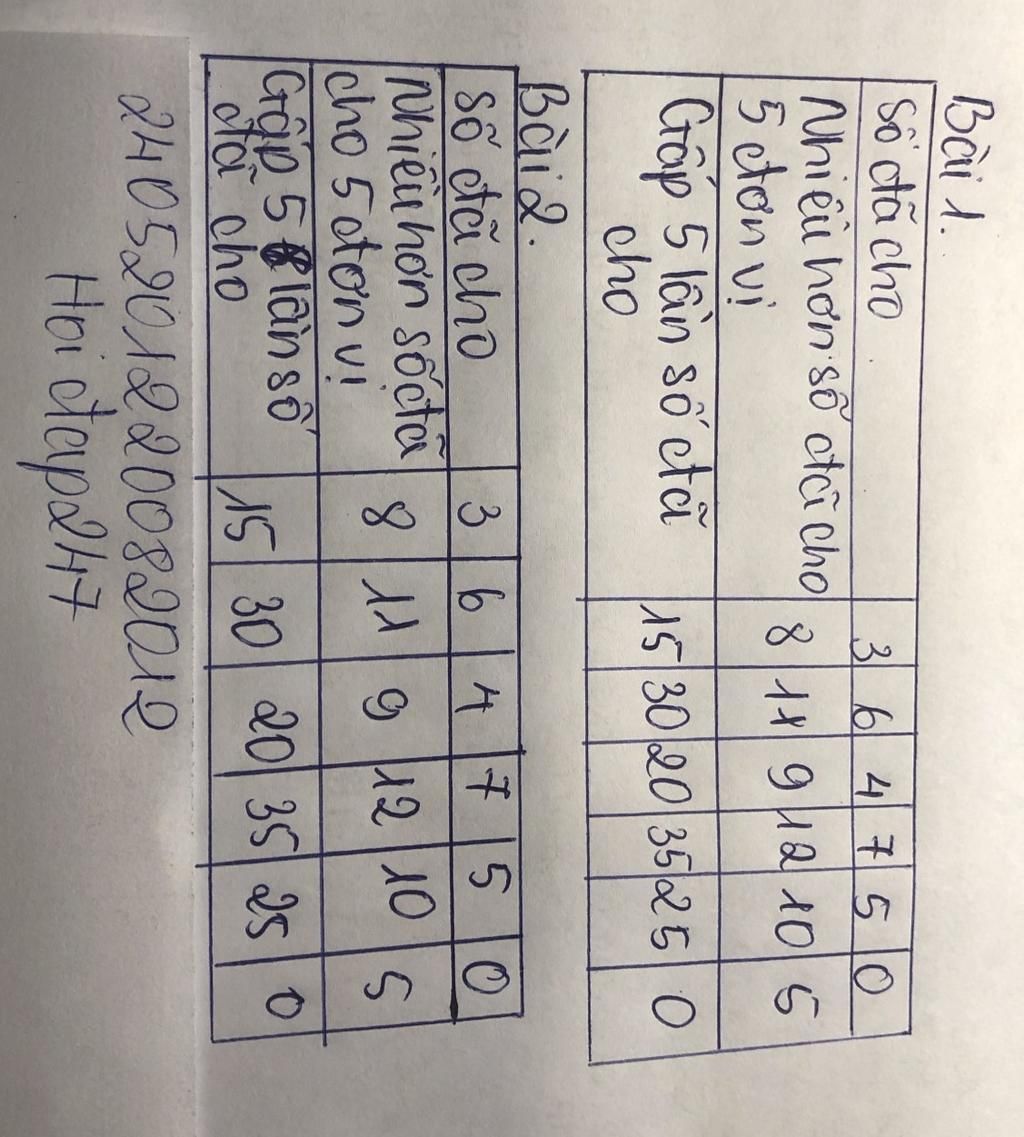 Bài 1.
Số đã cho 3 6 4 7 5 0
Nhiều hơn số đã cho 8 11 9 12 10 5
5 đơn vị
Gấp 5 lần số đã 15 30 20 35 25 0
cho
Bài 2.
Số đã cho 3 6 4 7 5 0
Nhiều hơn số đã 8 11 9 12 10 5
cho 5 đơn vị
Gấp 5 lần số 15 30 20 35 25 0
đã cho
2405201220082012
Hoi đap247